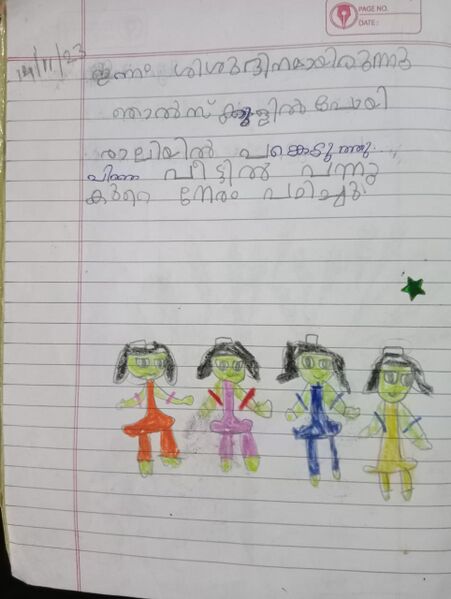 PAGE NO.
DATE:
14/11/23
ഇന്ന് ശിശുദിനമായിരുന്നു
ഞാൻ സ്കൂളിൽ പോയി
റാലിയിൽ പങ്കെടുത്തു.
പിന്നെ വീട്ടിൽ വന്നു
കുറെ നേരം പഠിച്ചു.